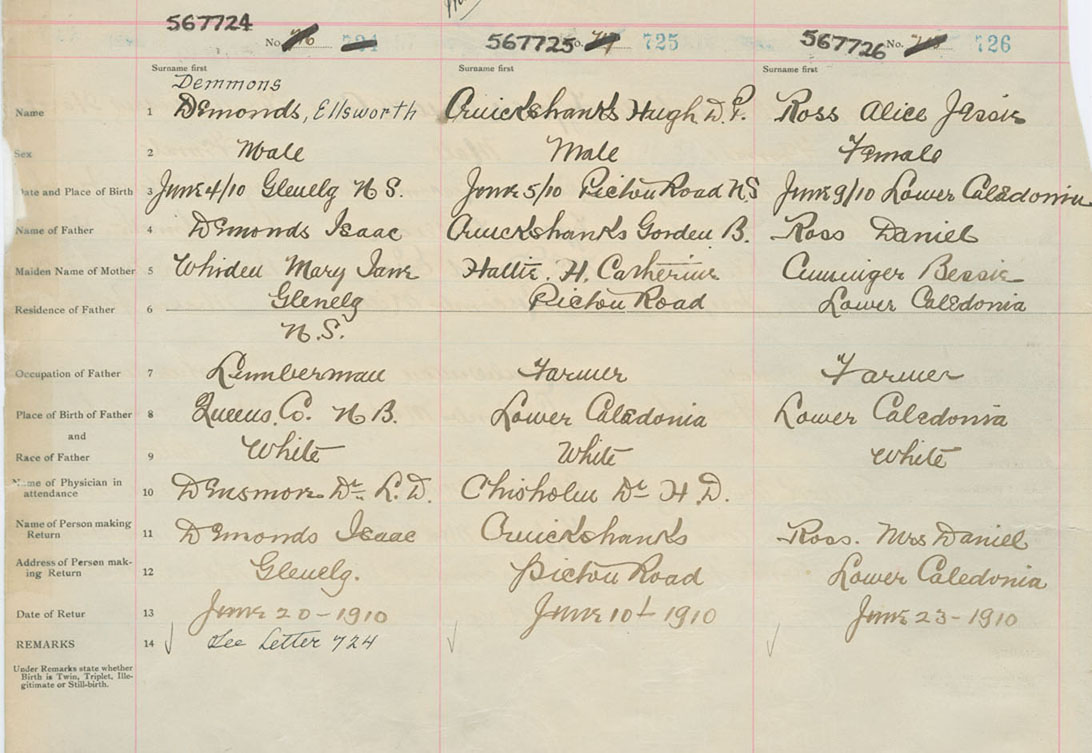 567724 No. 716 724 567725 No. 717 725 567726 No. 718 726
Surname first Surname first Surname first
Demmons
Name 1 Demonds, Ellsworth Cruickshanks Hugh D. F. Ross Alice Jessie
Sex 2 Male Male Female
Date and Place of Birth 3 June 4/10 Glenelg N S. June 5/10 Pictou Road N.S June 9/10 Lower Caledonia
Name of Father 4 Demonds Isaac Cruickshanks Gorden B. Ross Daniel
Maiden Name of Mother 5 Whiden Mary Jane Hattie. H. Catherine Cumminger Bessie
Residence of Father 6 Glenelg Pictou Road Lower Caledonia
N.S.
Occupation of Father 7 Lumberman Farmer Farmer
Place of Birth of Father 8 Queens Co. N B. Lower Caledonia Lower Caledonia
and
Race of Father 9 White White White
Name of Physician in
attendance 10 Densmore Dr L. D. Chisholm Dr H. D.
Name of Person making
Return 11 Demonds Isaac Cruickshanks Ross. Mrs Daniel
Address of Person mak-
ing Return 12 Glenelg. Pictou Road Lower Caledonia
Date of Retur 13 June 20-1910 June 10 1910 June 23-1910
REMARKS 14 See Letter 724
Under Remarks state whether
Birth is Twin, Triplet, Ille-
gitimate or Still-birth.